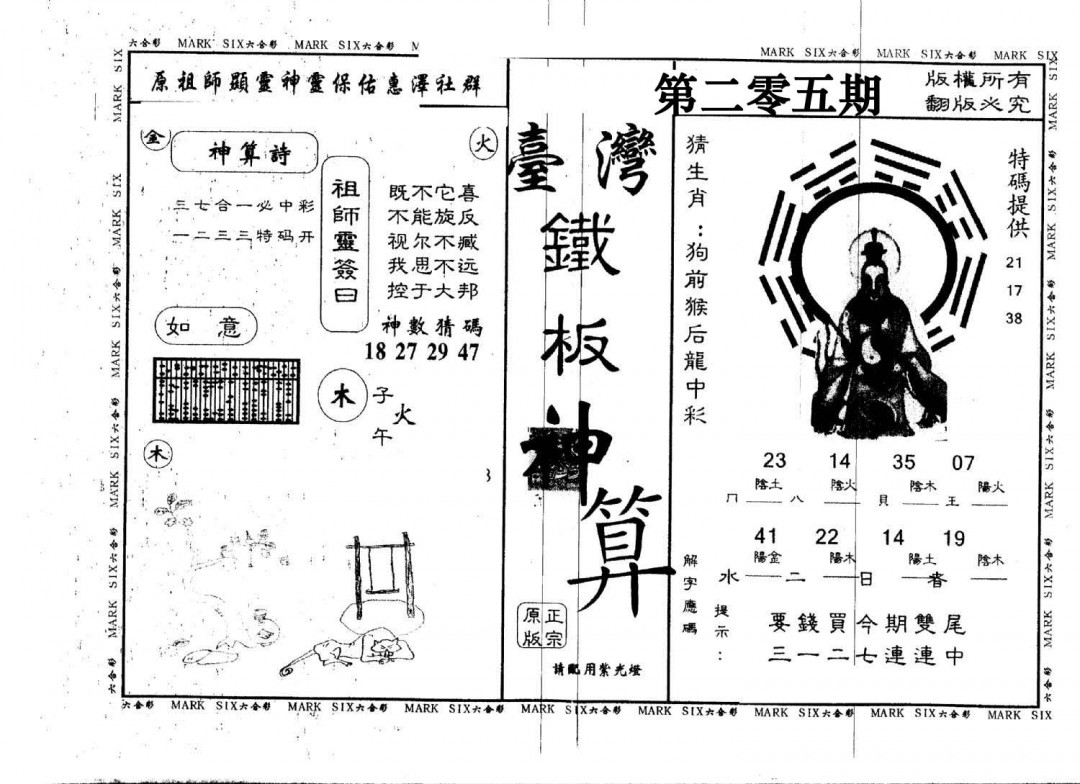 六合彩 MARK SIX六合彩 MARK SIX六合彩 M
MARK SIX六合彩 MARK SIX六合彩 MARK SIX
原祖師顯靈神靈保佑惠澤社群
第二零五期
版權所有
翻版必究
金
神算詩
火
三七合一必中彩
一二三三特码开
祖師靈簽曰
既不它喜
不能旋反
视尔不臧
我思不远
控于大邦
神數猜碼
18 27 29 47
如意
木
子
火
午
木
臺灣
鐵板神算
正宗
原版
請配用紫光燈
猜生肖：狗前猴后龍中彩
特碼提供
21
17
38
23 14 35 07
陰土 陰火 陰木 陽火
八 貝 王
41 22 14 19
陽金 陽木 陽土 陰木
水 二 日
解字應碼
提示：
要錢買今期雙尾
三一二七連連中
六合彩 MARK SIX六合彩 MARK SIX六合彩 MARK SIX六合彩 MARK SIX六合彩 MARK SIX六合彩 MARK SIX六合彩 MARK SIX六合彩 MARK SIX